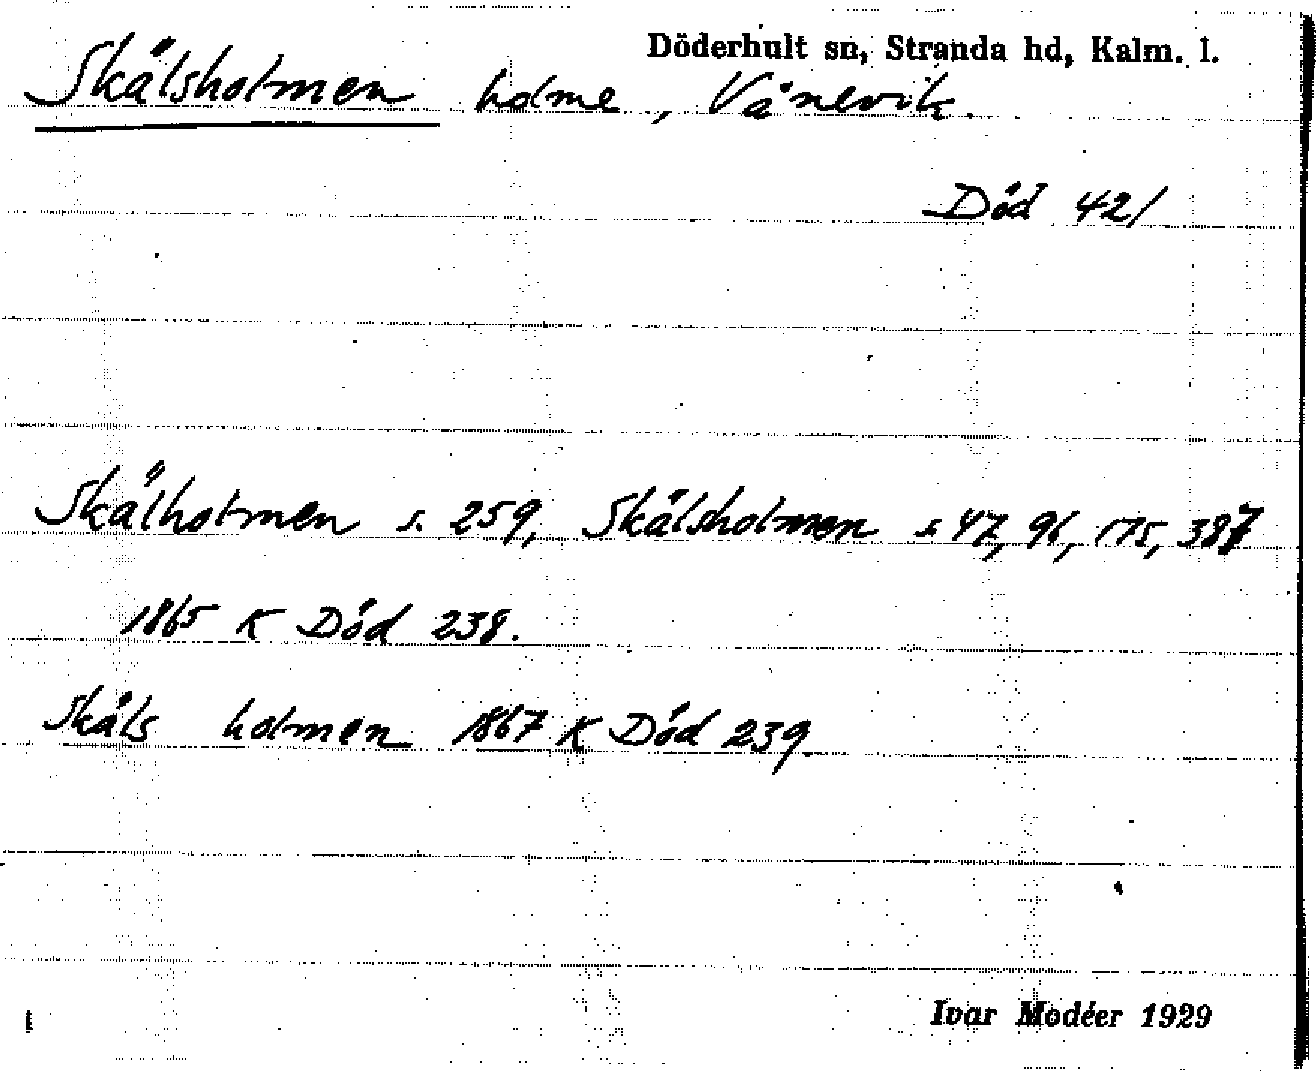 Döderhult sn, Stranda hd, Kalm. l.
Skålsholmen holme, Vånevik.
Död 421
Skålholmen s. 259, Skålsholmen s 47, 96, 175, 387
1865 K Död 238.
Skåls holmen 1867 K Död 239
Ivar Modéer 1929